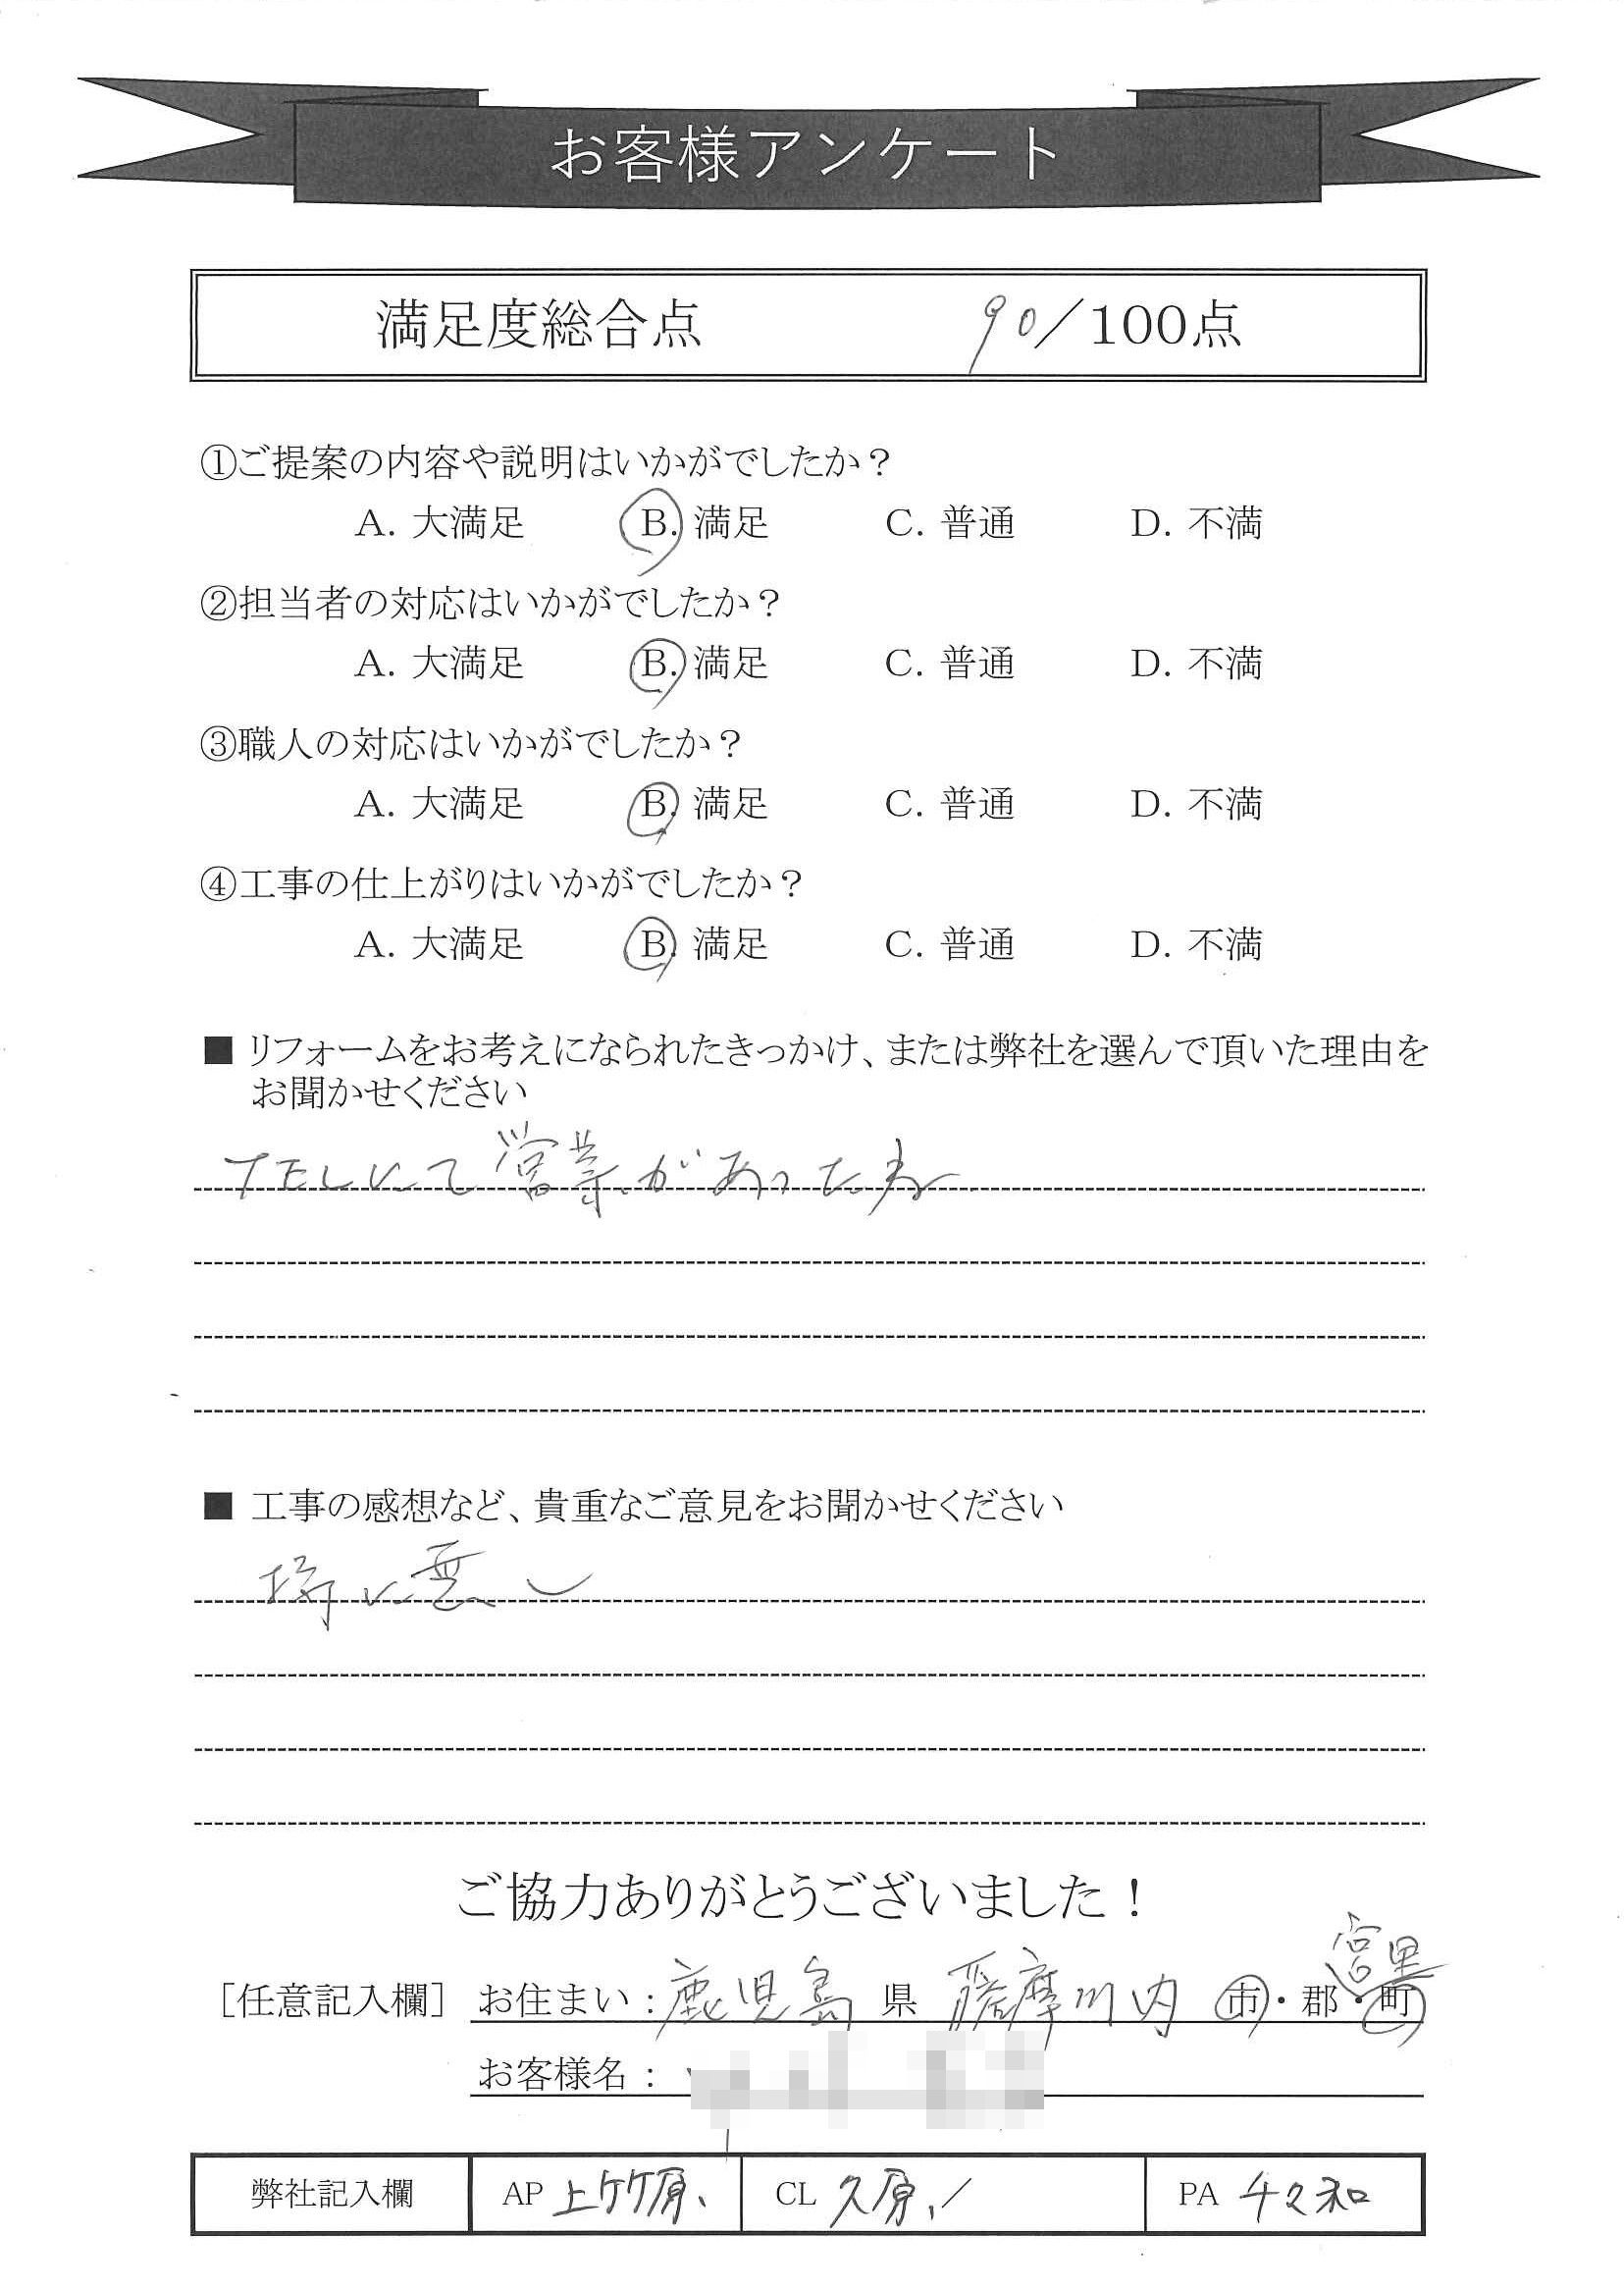 お客様アンケート
満足度総合点 90/100点
①ご提案の内容や説明はいかがでしたか？
A. 大満足 B. 満足 C. 普通 D. 不満
②担当者の対応はいかがでしたか？
A. 大満足 B. 満足 C. 普通 D. 不満
③職人の対応はいかがでしたか？
A. 大満足 B. 満足 C. 普通 D. 不満
④工事の仕上がりはいかがでしたか？
A. 大満足 B. 満足 C. 普通 D. 不満
■ リフォームをお考えになられたきっかけ、または弊社を選んで頂いた理由を
お聞かせください
TELにて営業があった為
■ 工事の感想など、貴重なご意見をお聞かせください
特に無し
ご協力ありがとうございました！
宮里
［任意記入欄］ お住まい：鹿児島 県 薩摩川内 市・郡・町
お客様名：
弊社記入欄 AP 上竹原、 CL 久原、/ PA 千々和